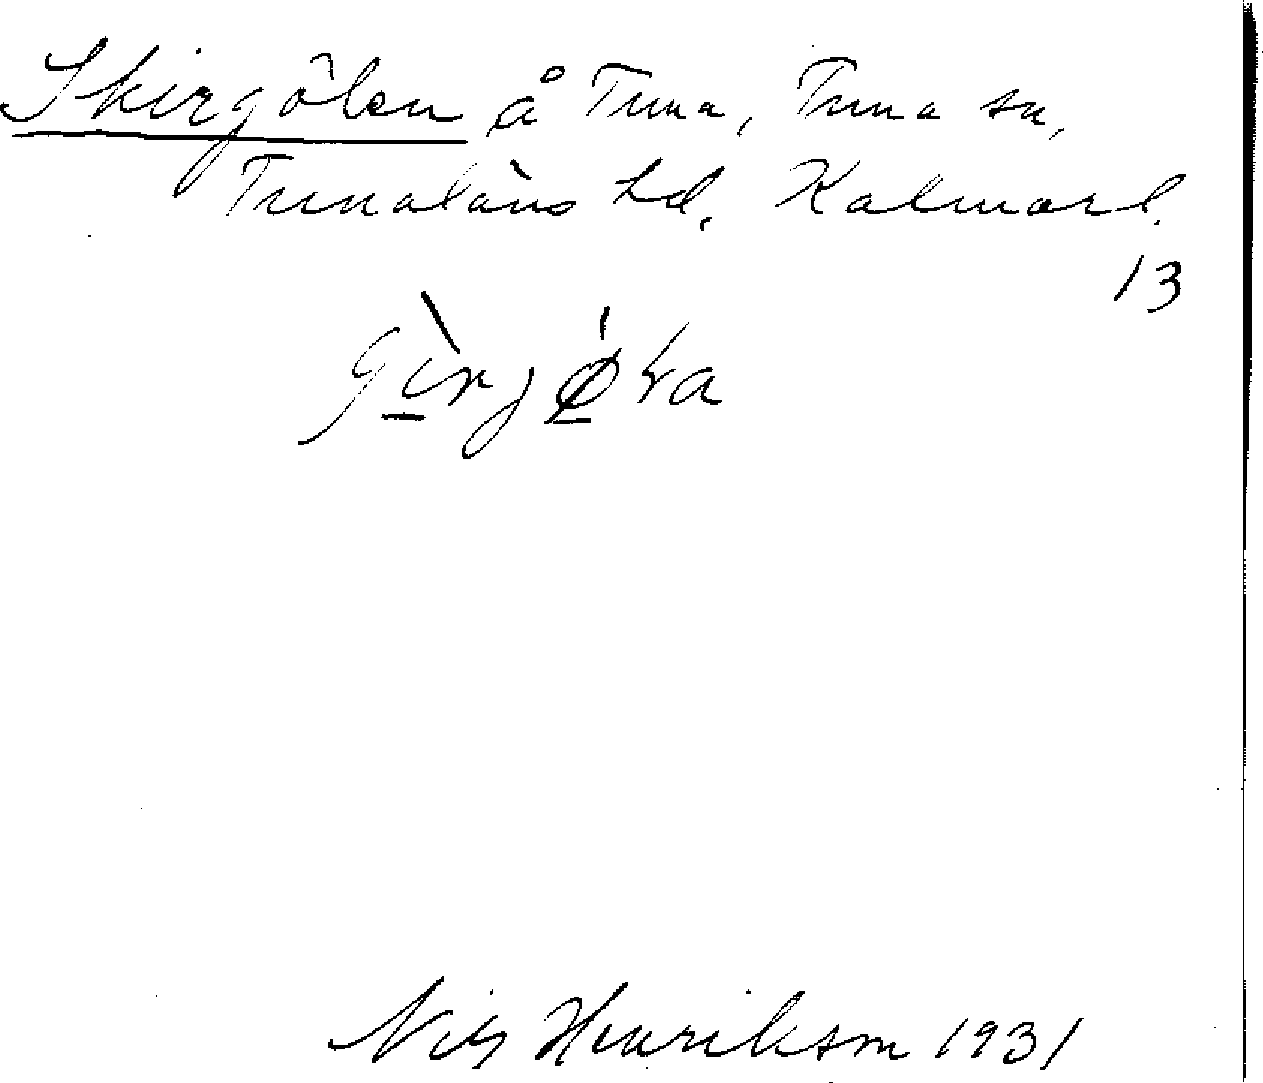 Skirgölen å Tuna, Tuna sn,
Tunaläns hd. Kalmarl.
13
Nils Henrikson 1931